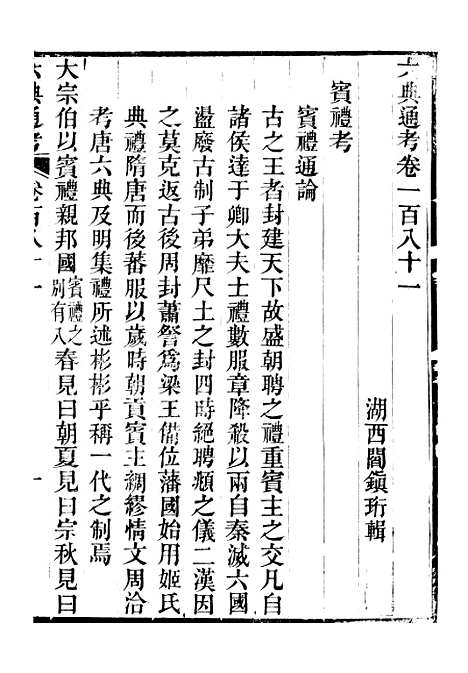 六典通考卷一百八十一
湖西閻鎮珩輯
賓禮考
賓禮通論
古之王者封建天下故盛朝聘之禮重賓主之交凡自
諸侯達于卿大夫士禮數服章降殺以兩自秦滅六國
盪廢古制子弟靡尺土之封四時絕聘頫之儀二漢因
之莫克返古後周封蕭詧爲梁王備位藩國始用姬氏
典禮隋唐而後蕃服以歲時朝貢賓主綢繆情文周洽
考唐六典及明集禮所述彬彬乎稱一代之制焉
大宗伯以賓禮親邦國賓禮之別有八春見曰朝夏見曰宗秋見曰
六典通考
卷百八十一
一